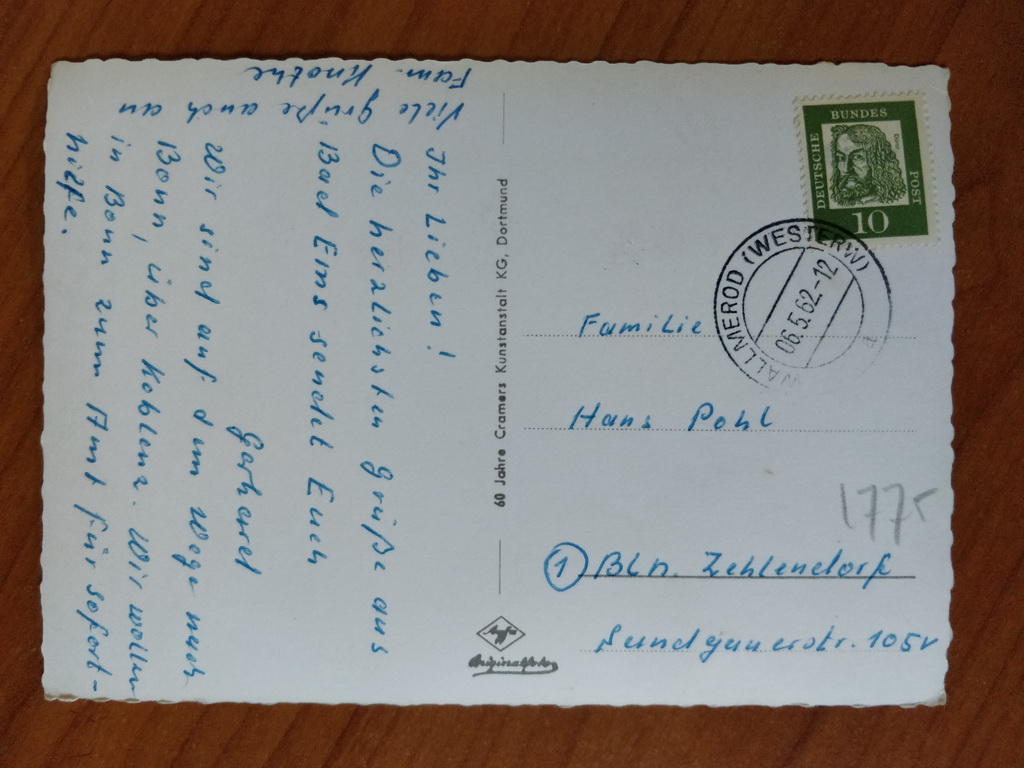 Ihr Lieben!
Die herzlichsten Grüße aus
Bad Ems sendet Euch
Gerhard
Wir sind auf dem Wege nach
Bonn, über Koblenz. Wir wollen
in Bonn zum Amt für Sofort-
hilfe.
Viele Grüße auch an
Fam. Knothe
60 Jahre Cramers Kunstanstalt KG, Dortmund
Agfa
Originalfoto
DEUTSCHE
BUNDES
POST
Dürer
10
WALLMEROD (WESTERW)
06.5.62-12
Familie
Hans Pohl
1775
① Bln. Zehlendorf
Sundgauerstr. 105v